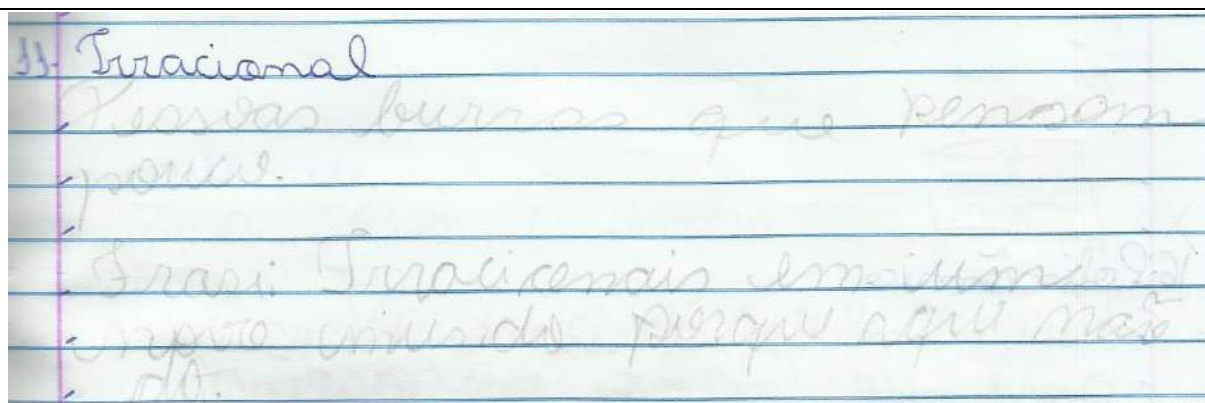 11- Irracional
Pessoas burras que pensam
poucas.
Frasi: Irracionais em um
novo mundo porqu aqui não
do.